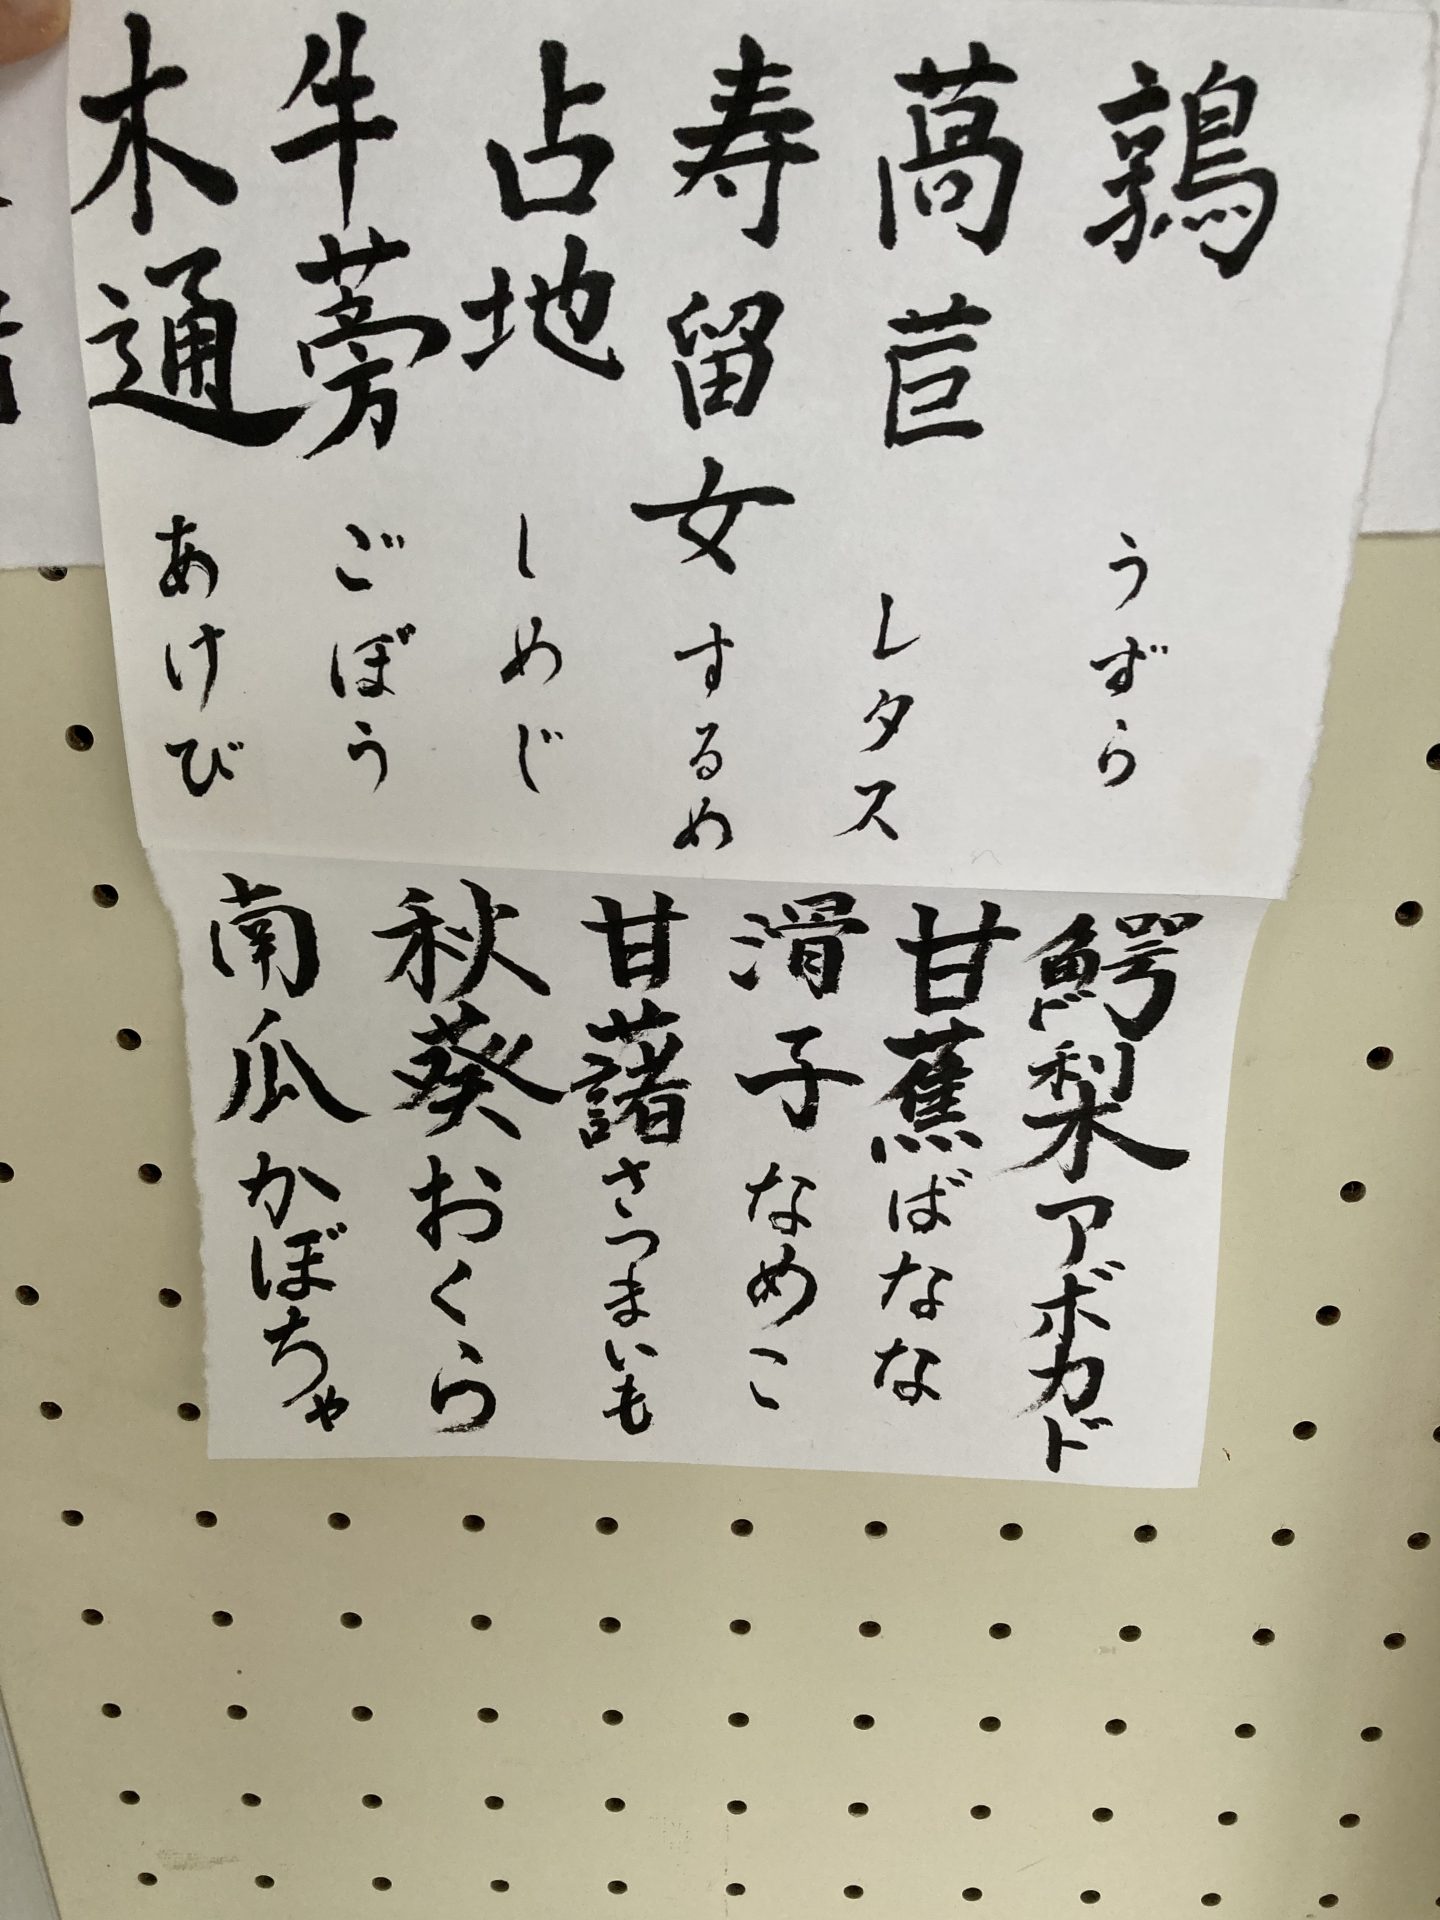 鶉 うずら
萵苣 レタス
寿留女 するめ
占地 しめじ
牛蒡 ごぼう
木通 あけび
鰐梨 アボカド
甘蕉 ばなな
滑子 なめこ
甘藷 さつまいも
秋葵 おくら
南瓜 かぼちゃ